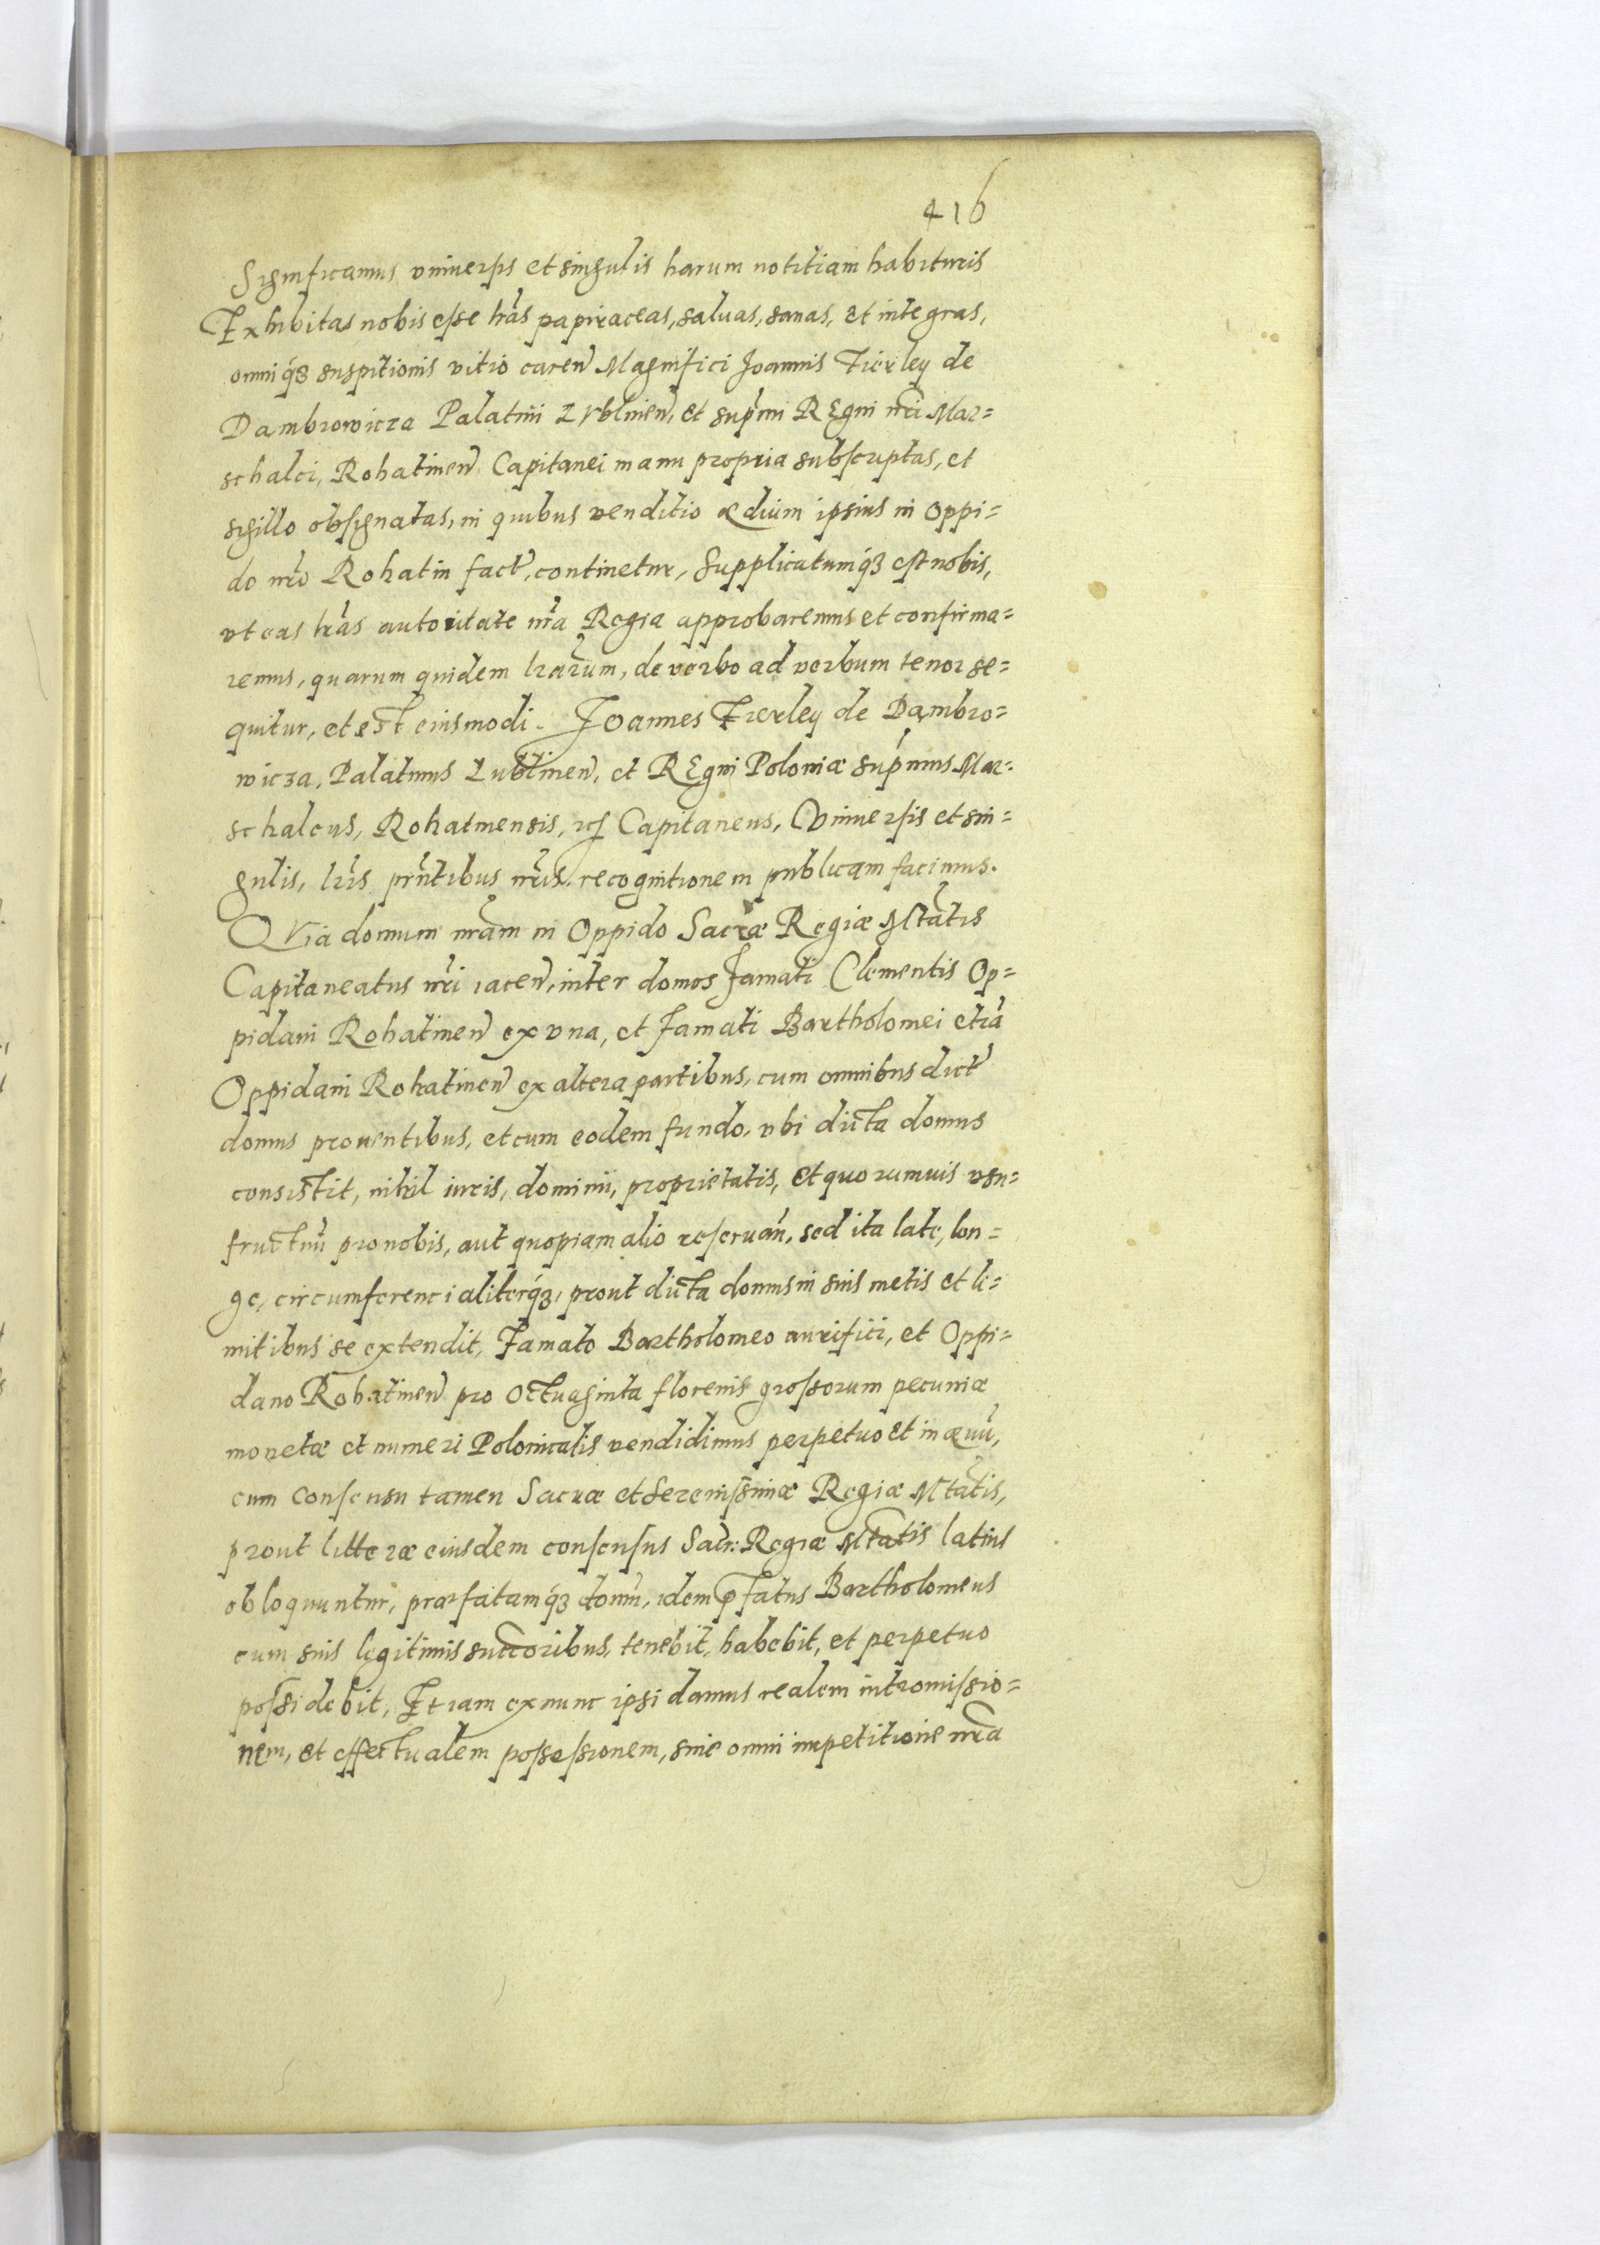 416
Significamus vniuersis et singulis harum notitiam habituris
Exhibitas nobis esse lrãs papiraceas, saluas, sanas, et integras,
omniq́ꝫ suspitionis vitio careñ Magnifici Joannis Fierley de
Dambrowicza Palatini Lvblineñ, et suprmi REgni nrĩ Mar=
schalci, Rohatineñ Capitanei manu propria subscriptas, et
sigillo obsignatas, in quibus venditio ædium ipsius in Oppi=
do nrõ Rohatin fact̃, continetur, Supplicatumq́ꝫ est nobis,
vt eas lrãs autoritate nrã Regia approbaremus et confirma=
remus, quarum quidem lrãrum, de verbo ad verbum tenor se=
quitur, et est eiusmodi. Joannes Fierley de Dambro=
wicza, Palatinus Lublineñ, et REgni Poloniæ suprmus Mar=
schalcus, Rohatinensis, Capitaneus, Vniuersis et sin=
gulis, lrĩs prñtibus nrĩs recognitionem publicam facimus.
QVia domum nrãm in Oppido Sacræ Regiæ Mtãtis
Capitaneatus nrĩ iaceñ, inter domos famati Clementis Op=
pidani Rohatineñ ex vna, et famati Bartholomei etiã
Oppidani Rohatineñ ex altera partibus, cum omnibus dict̃
domus prouentibus, et cum eodem fundo, vbi dicta domus
consistit, nihil iuris, dominii, proprietatis, et quorumuis vsu=
fructuũ pro nobis, aut quopiam alio reseruañ, sed ita late, lon=
ge, circumferencialiterq́ꝫ, prout dicta domus in suis metis et li=
mitibus se extendit, Famato Bartholomeo aurifici, et Oppi=
dano Rohatineñ pro Octuaginta florenis grossorum pecuniæ
monetæ et numeri Polonicalis vendidimus perpetuo et in æuũ,
cum Consensu tamen Sacræ et Serenissimæ Regiæ Mtãtis,
prout litteræ eiusdem consensus Sacr: Regiæ Mtãtis latius
obloquuntur, præfatamq́ꝫ domũ, idem p̃fatus Bartholomeus
cum suis legitimis succoribus, tenebit, habebit, et perpetuo
possidebit, Et iam ex nunc ipsi damus realem intromissio=
nem, et effectualem possessionem, sine omni impetitione nrã